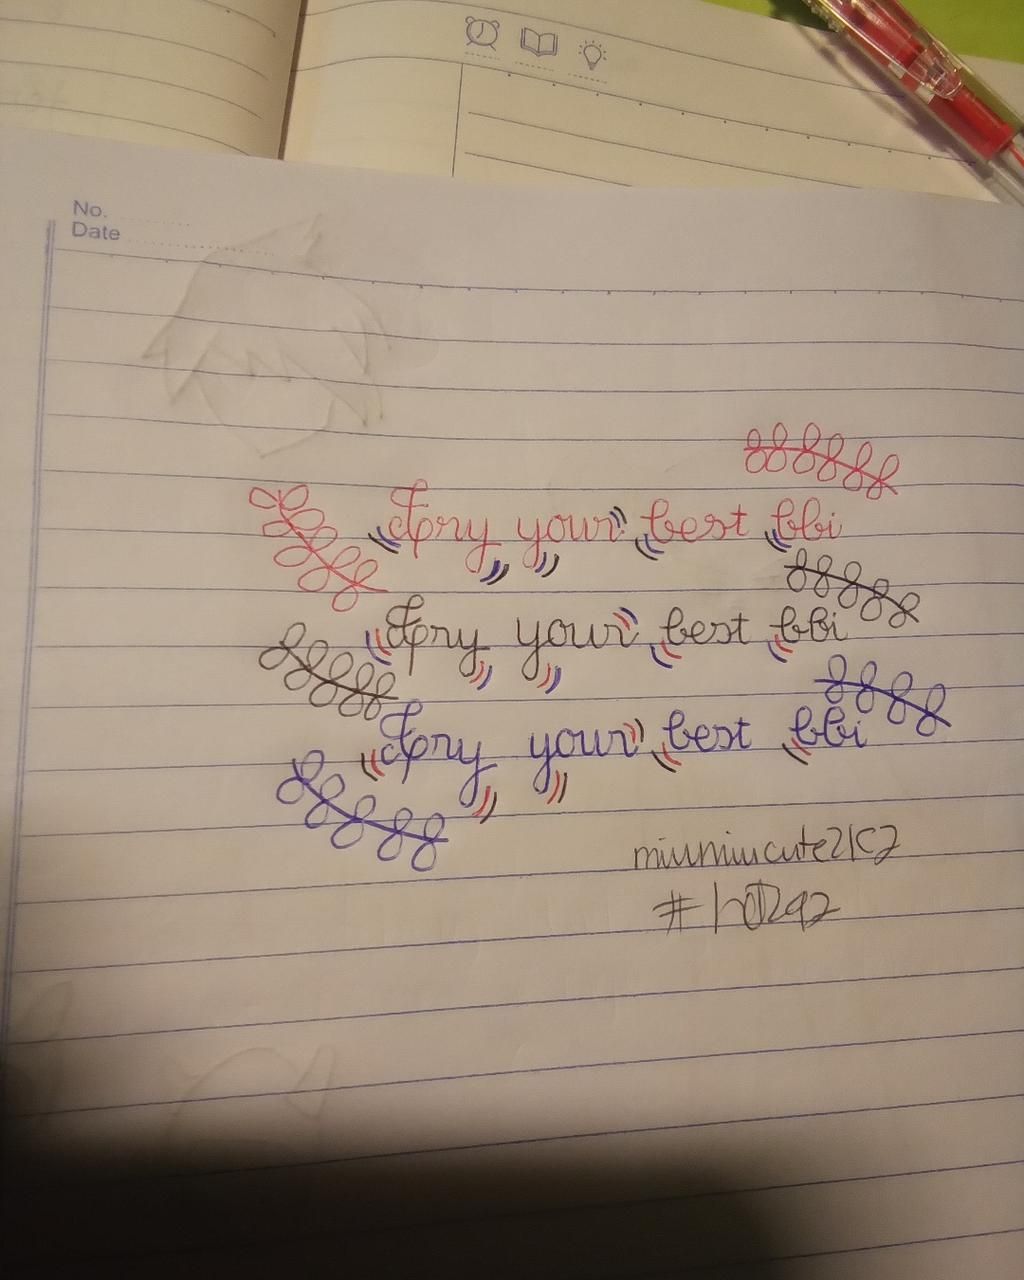 No.
Date
Try your best bbi
Try your best bbi
Try your best bbi
miumiucute2k2